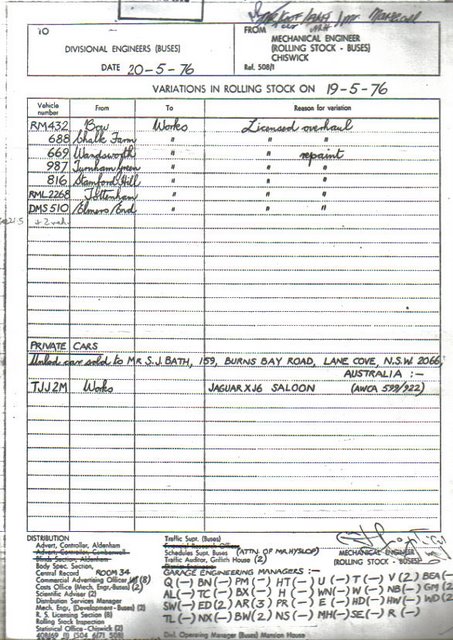 TO
DIVISIONAL ENGINEERS (BUSES)
DATE 20-5-76
FROM
MECHANICAL ENGINEER
(ROLLING STOCK - BUSES)
CHISWICK
Ref. 508/1
VARIATIONS IN ROLLING STOCK ON 19-5-76
Vehicle number From To Reason for variation
RM432 Bow Works Licensed overhaul
688 Chalk Farm " " "
669 Wandsworth " " repaint
987 Turnham Green " " "
816 Stamford Hill " " "
RML2268 Tottenham " " "
DMS510 Elmers End " " "
PRIVATE CARS
car sold to MR S.J. BATH, 159, BURNS BAY ROAD, LANE COVE, N.S.W. 2066,
AUSTRALIA :-
TJJ2M Works JAGUAR XJ6 SALOON (AWCA 599/922)
DISTRIBUTION
Advert, Controller, Aldenham
Advert, Controller, Camberwell
Body Spec. Section,
Central Record ROOM 34
Commercial Advertising Officer (8)
Costs Office (Mech, Engr, Buses) (2)
Scientific Adviser (2)
Distribution Services Manager
Mech. Engr, (Development - Buses) (2)
R. S. Licensing Section (8)
Rolling Stock Inspection
Statistical Office - Chiswick (2)
Traffic Supt. (Buses)
Schedules Supt. Buses (ATTN. OF MR. HYSLOP)
Traffic Auditor, Griffith House (2)
MECHANICAL ENGINEER
(ROLLING STOCK - BUSES)
GARAGE ENGINEERING MANAGERS :-
Q (-) BN (-) PM (-) HT (-) U (-) T (-) V (2) BEA (-)
AL (-) TC (-) BX (-) H (-) WN (-) W (-) NB (-) GM (2)
SW (-) ED (2) AR (3) PR (-) E (-) HD (-) HW (-) WD (2)
TL (-) NX (-) BW (2) NS (-) MH (-) SE (-) R (-)
Div. Operating Manager (Buses) Mansion House